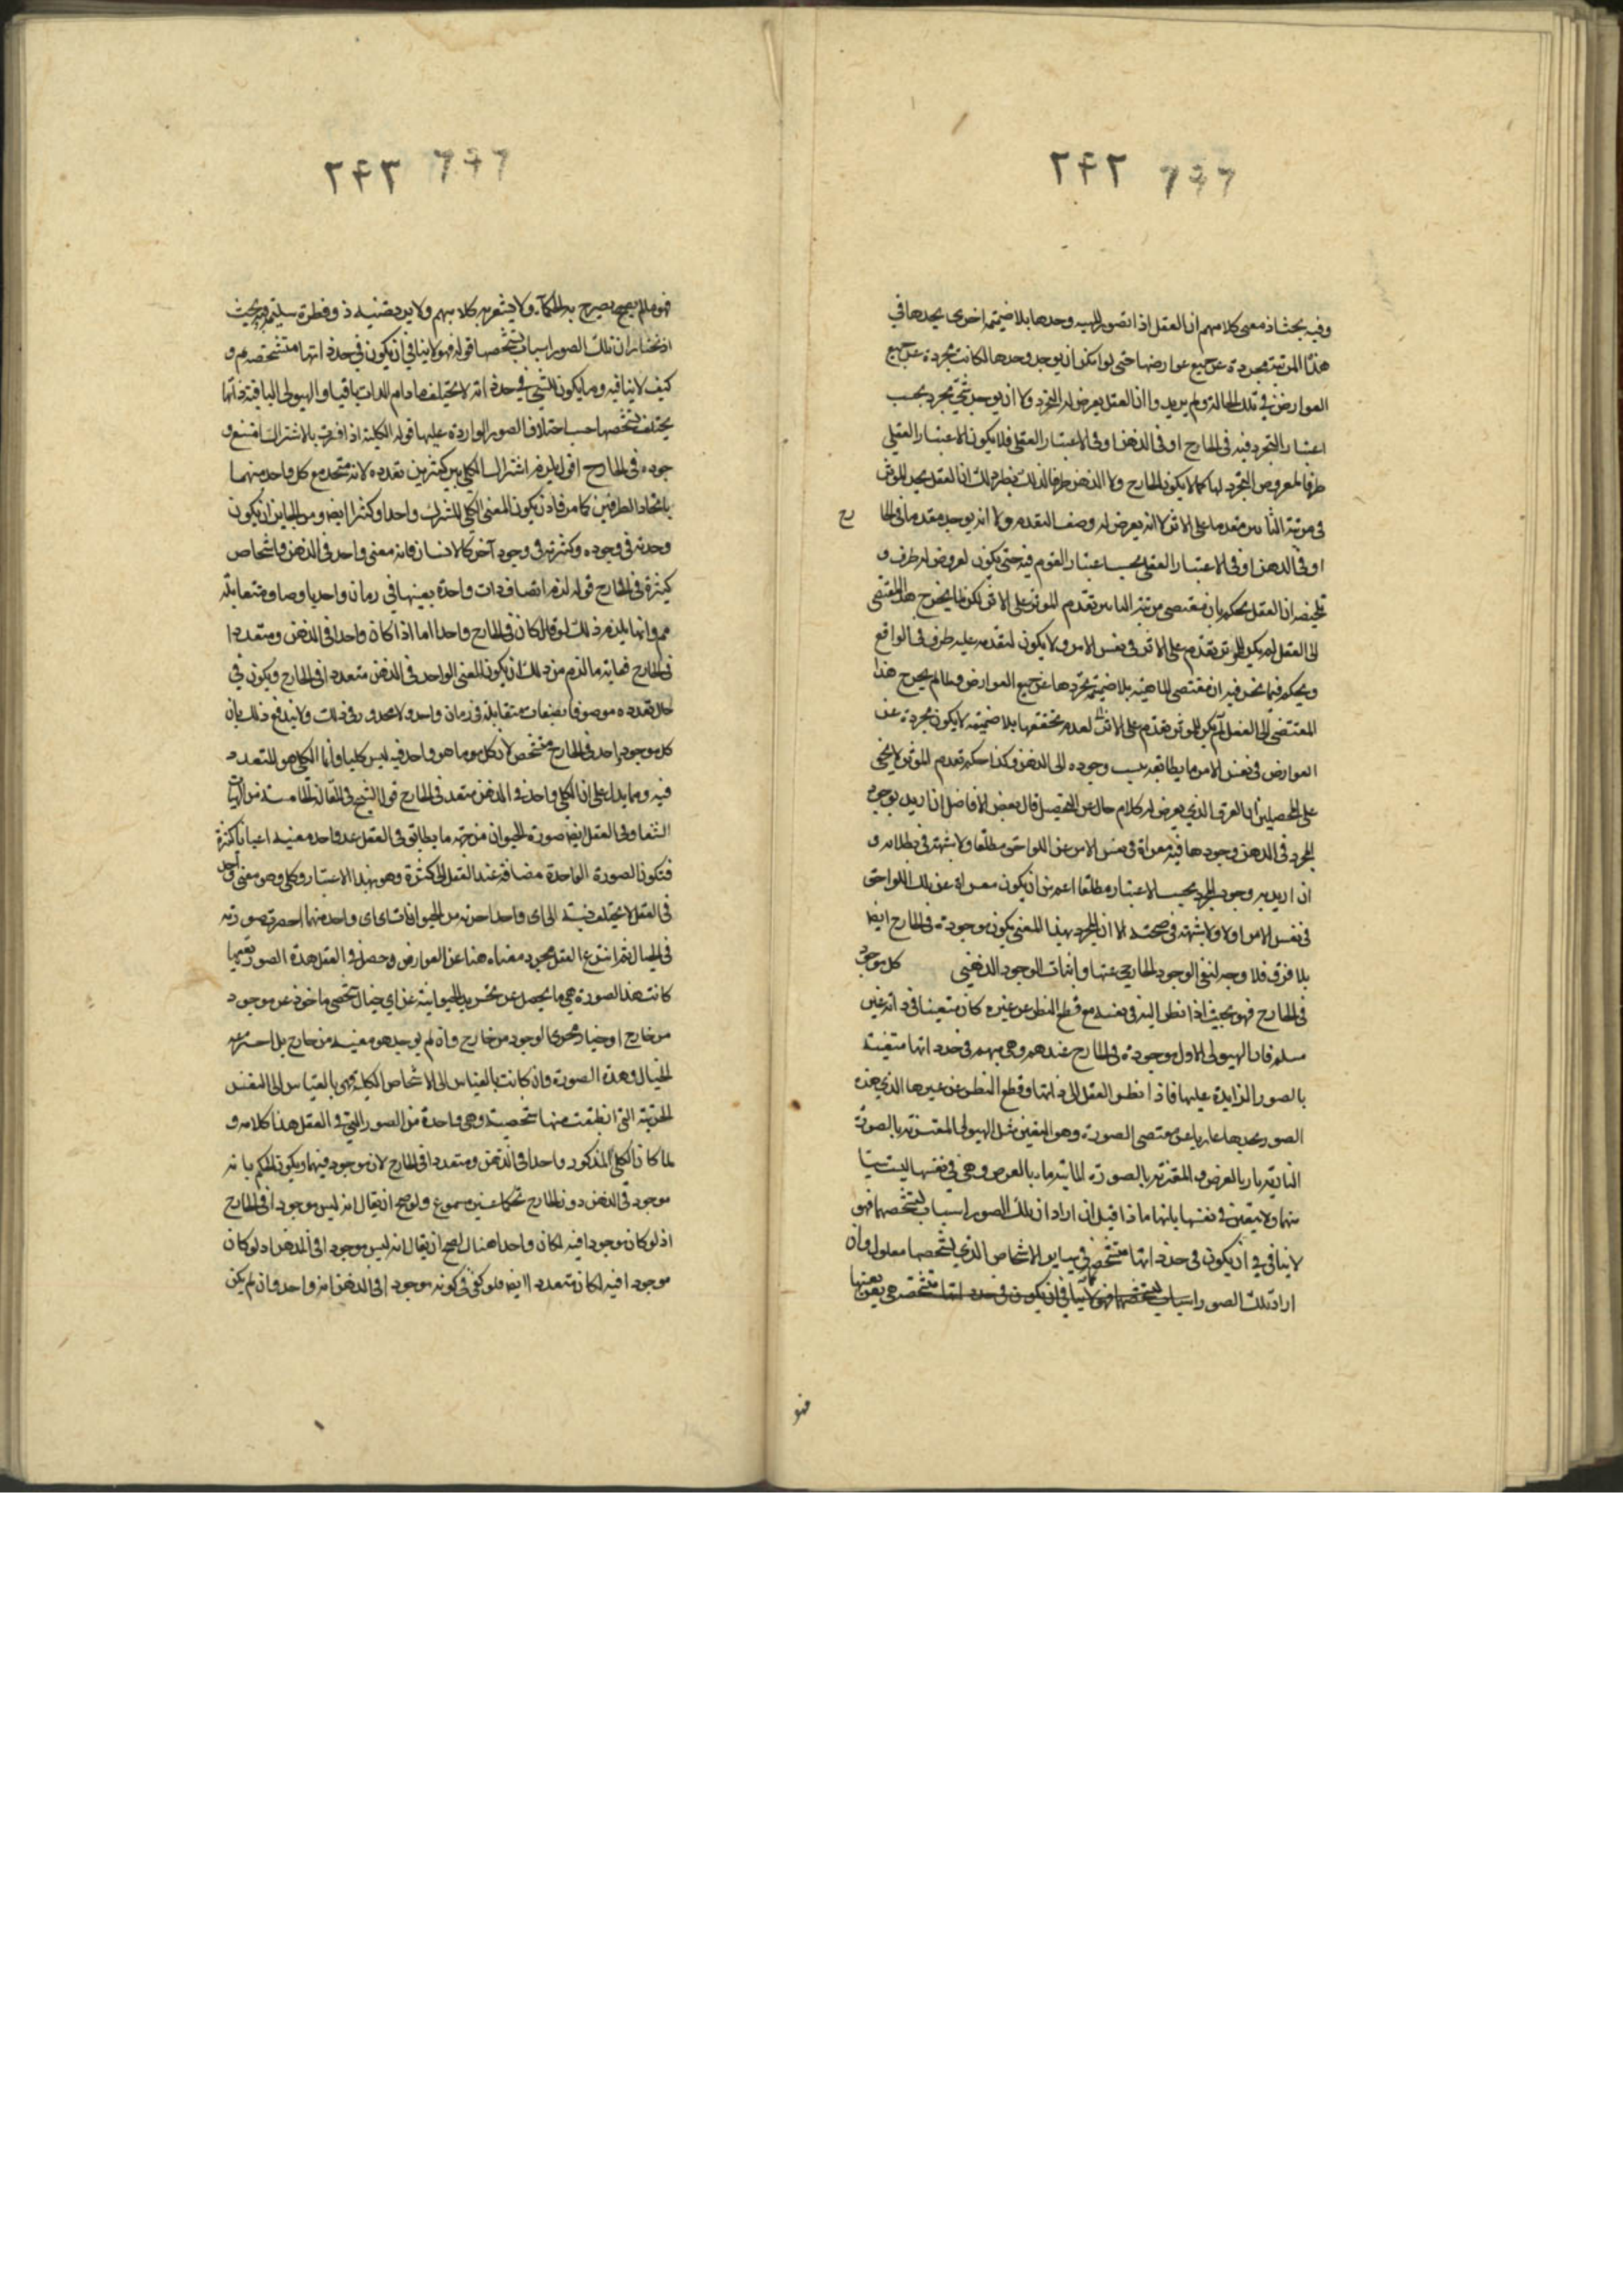 ٢۴٢
وفيه بحث اذ معنى كلامهم ان العقل اذا تصور المهية وحدها بلا ضميمة اخرى يجدها في
هذه المرتبة مجردة عن جميع عوارضها حتى لو امكن ان يوجد وحدها لكانت مجردة عن جميع
العوارض في تلك الحالة ولم يريدوا ان العقل يعرض له التجرد ولا ان يوجد شئ مجرد بحسب
اعتبار التجرد فيه في الخارج او في الذهن او في الاعتبار العقلي فلا يكون الاعتبار العقلي
ظرفا لمعروض التجرد لها كما لا يكون الخارج ولا الذهن ظرفا لذلك نظير ذلك ان العقل يجد المؤثر
في مرتبة التأثير متقدما على الاثر لا انه يعرض له وصف التقدم ولا انه يوجد مقدما في الخا
رج
او في الذهن او في الاعتبار العقلي بحسب اعتبار القوم فيه حتى يكون لعروض له ظرف و
تلخيصه ان العقل يحكم بان مقتضى مرتبة التأثير تقدم المؤثر على الاثر لكن ما لم يخرج هذا المقتضى
الى العقل لم يكن للمؤثر تقدم على الاثر في نفس الامر ولا يكون لتقدمه عليه ظرف في الواقع
ويحكم فيما نحن فيه ان مقتضى الماهية بلا ضميمة تجردها عن جميع العوارض وما لم يخرج هذا
المقتضى الى الفعل لم يكن للمؤثر تقدم على الاثر لعدم تحققها بلا ضميمة لا يكون مجردة عن
العوارض في نفس الامر ما يطابقه بسبب وجوده الى الذهن وكذا حكم تقدم المؤثر لا يخفى
على المحصلين ان الفرق الذي يعرض له كلام خال عن التحصيل قال بعض الافاضل ان اريد بوجود
المجرد في الذهن وجودها فيه معراة في نفس الامر عن اللواحق مطلقا ولا شبهة في بطلانه و
ان اريد به وجود المجرد بحسب الاعتبار مطلقا اعم من ان يكون معراة عن تلك اللواحق
في نفس الامر اولا ولا شبهة في صحته الا ان المجرد بهذا المعنى يكون موجودة في الخارج ايضا
بلا فرق فلا وجه لنفي الوجود الخارجي عنها واثبات الوجود الذهني كل موجود
في الخارج فهو بحيث اذا نظر اليه في نفسه مع قطع النظر عن غيره كان متعينا في ذاته غير
مسلم فان الهيولى الاولى موجودة في الخارج عندهم وهي مبهمة في حد ذاتها متعينة
بالصور الزايدة عليها فاذا نظر العقل الى ذاتها وقطع النظر عن غيرها الذي هذه
الصور يجدها عاريا عن مقتضى الصورة وهو التعين مثل الهيولى المقترنة بالصورة
النارية نار بالعرض والمقترنة بالصورة المائية ماء بالعرض وهي في نفسها ليست شيئا
منهما ولا يتعين في نفسها بانها ماذا قيل ان اراد ان تلك الصور اسباب لتشخصها فهو
لا ينافي في ان يكون في حد ذاتها متشخص في ساير الاشخاص الذي لتشخصها معلول وان
اراد تلك الصور اسباب لتشخصها فهو لا ينافي ان يكون في حد ذاتها متشخص هي بعينها
فهو
٢۴٣
فهو ما لم يصرح به الحكماء ولا يشعر به كلامهم ولا يرتضيه ذو فطرة سليمة وفيه بحث
اذ نختار ان تلك الصور اسباب لتشخصها قوله فهو لا ينافي ان يكون في حد ذاتها متشخصة مم و
كيف لا ينافيه وما يكون للشئ في حد ذاته لا يختلف ما دام الذات باقيا والهيولى الباقية ذاتها
يختلف تشخصها حسب اختلاف الصور الواردة عليها قوله الكلية اذا فسرت بالاشتراك امتنع و
جوده في الخارج اقول يلزم اشتراك الكلي بين كثيرين تعدده لانه متحد مع كل واحد منهما
باتحاد الطرفين كما مر فاذن يكون المعنى الكلي المشترك واحدا وكثيرا ايضا ومن الجايز ان يكون
وحدته في وجوده وكثرته في وجود آخر كالانسان فانه معنى واحد في الذهن واشخاص
كثيرة في الخارج قوله لزم اتصاف ذات واحدة بعينها في زمان واحد باوصاف متقابلة
مم وانما يلزم ذلك لو كان في الخارج واحدا اما اذا كان واحدا في الذهن ومتعددا
في الخارج فغاية ما لزم من ذلك ان يكون المعنى الواحد في الذهن متعددا في الخارج ويكون في
حال تعدده موصوفا بصفات متقابلة في زمان واحد ولا محذور في ذلك ولا يندفع ذلك بان
كل موجود واحد في الخارج متشخص لان كل موجود هو واحد فيه ليس كليا وانما الكلي هو المتعدد
فيه ومما يدل على ان الكلي واحد في الذهن متعدد في الخارج قول الشيخ في المقالة الخامسة من الهيات
الشفا وفي العقل ايضا صورة الحيوان من جهة ما يطابق في العقل عند واحد معنيه اعيانا كثيرة
فتكون الصورة الواحدة مضافة عند العقل الى كثرة وهو بهذا الاعتبار وكلي وهو معنى واحد
في العقل لا يختلف نسبته الى اي واحد اخذته من الحيوانات اي اي واحد منها احضرت صورته
في الخيال ثم انتزع العقل مجرد معناه هنا عن العوارض وحصل في العقل هذه الصورة بعينها
كانت هذه الصورة هي ما يحصل عن تجريد الحيوانية عن اي خيال شخصي ماخوذ عن موجود
من خارج او خيار مجرى الوجود من خارج وان لم يوجد هو معنيه من خارج بل اخترعه
الخيال وهذه الصورة وان كانت بالقياس الى الاشخاص الكلية وهي بالقياس الى النفس
الجزئية التي انطبعت منها شخصية وهي واحدة من الصور التي في العقل هذا كلامه و
لما كان الكلي المذكور واحدا في الذهن ومتعددا في الخارج لانه موجود فيهما ويكون الحكم بانه
موجود في الذهن دون الخارج تحكما غير مسموع ولو صح ان يقال انه ليس موجودا في الخارج
اذ لو كان موجودا فيه لكان واحدا هناك لصح ان يقال انه ليس موجودا في الذهن اذ لو كان
موجودا فيه لكان متعددا ايضا فلو كفى في كونه موجودا في الذهن انه واحد وان لم يكن